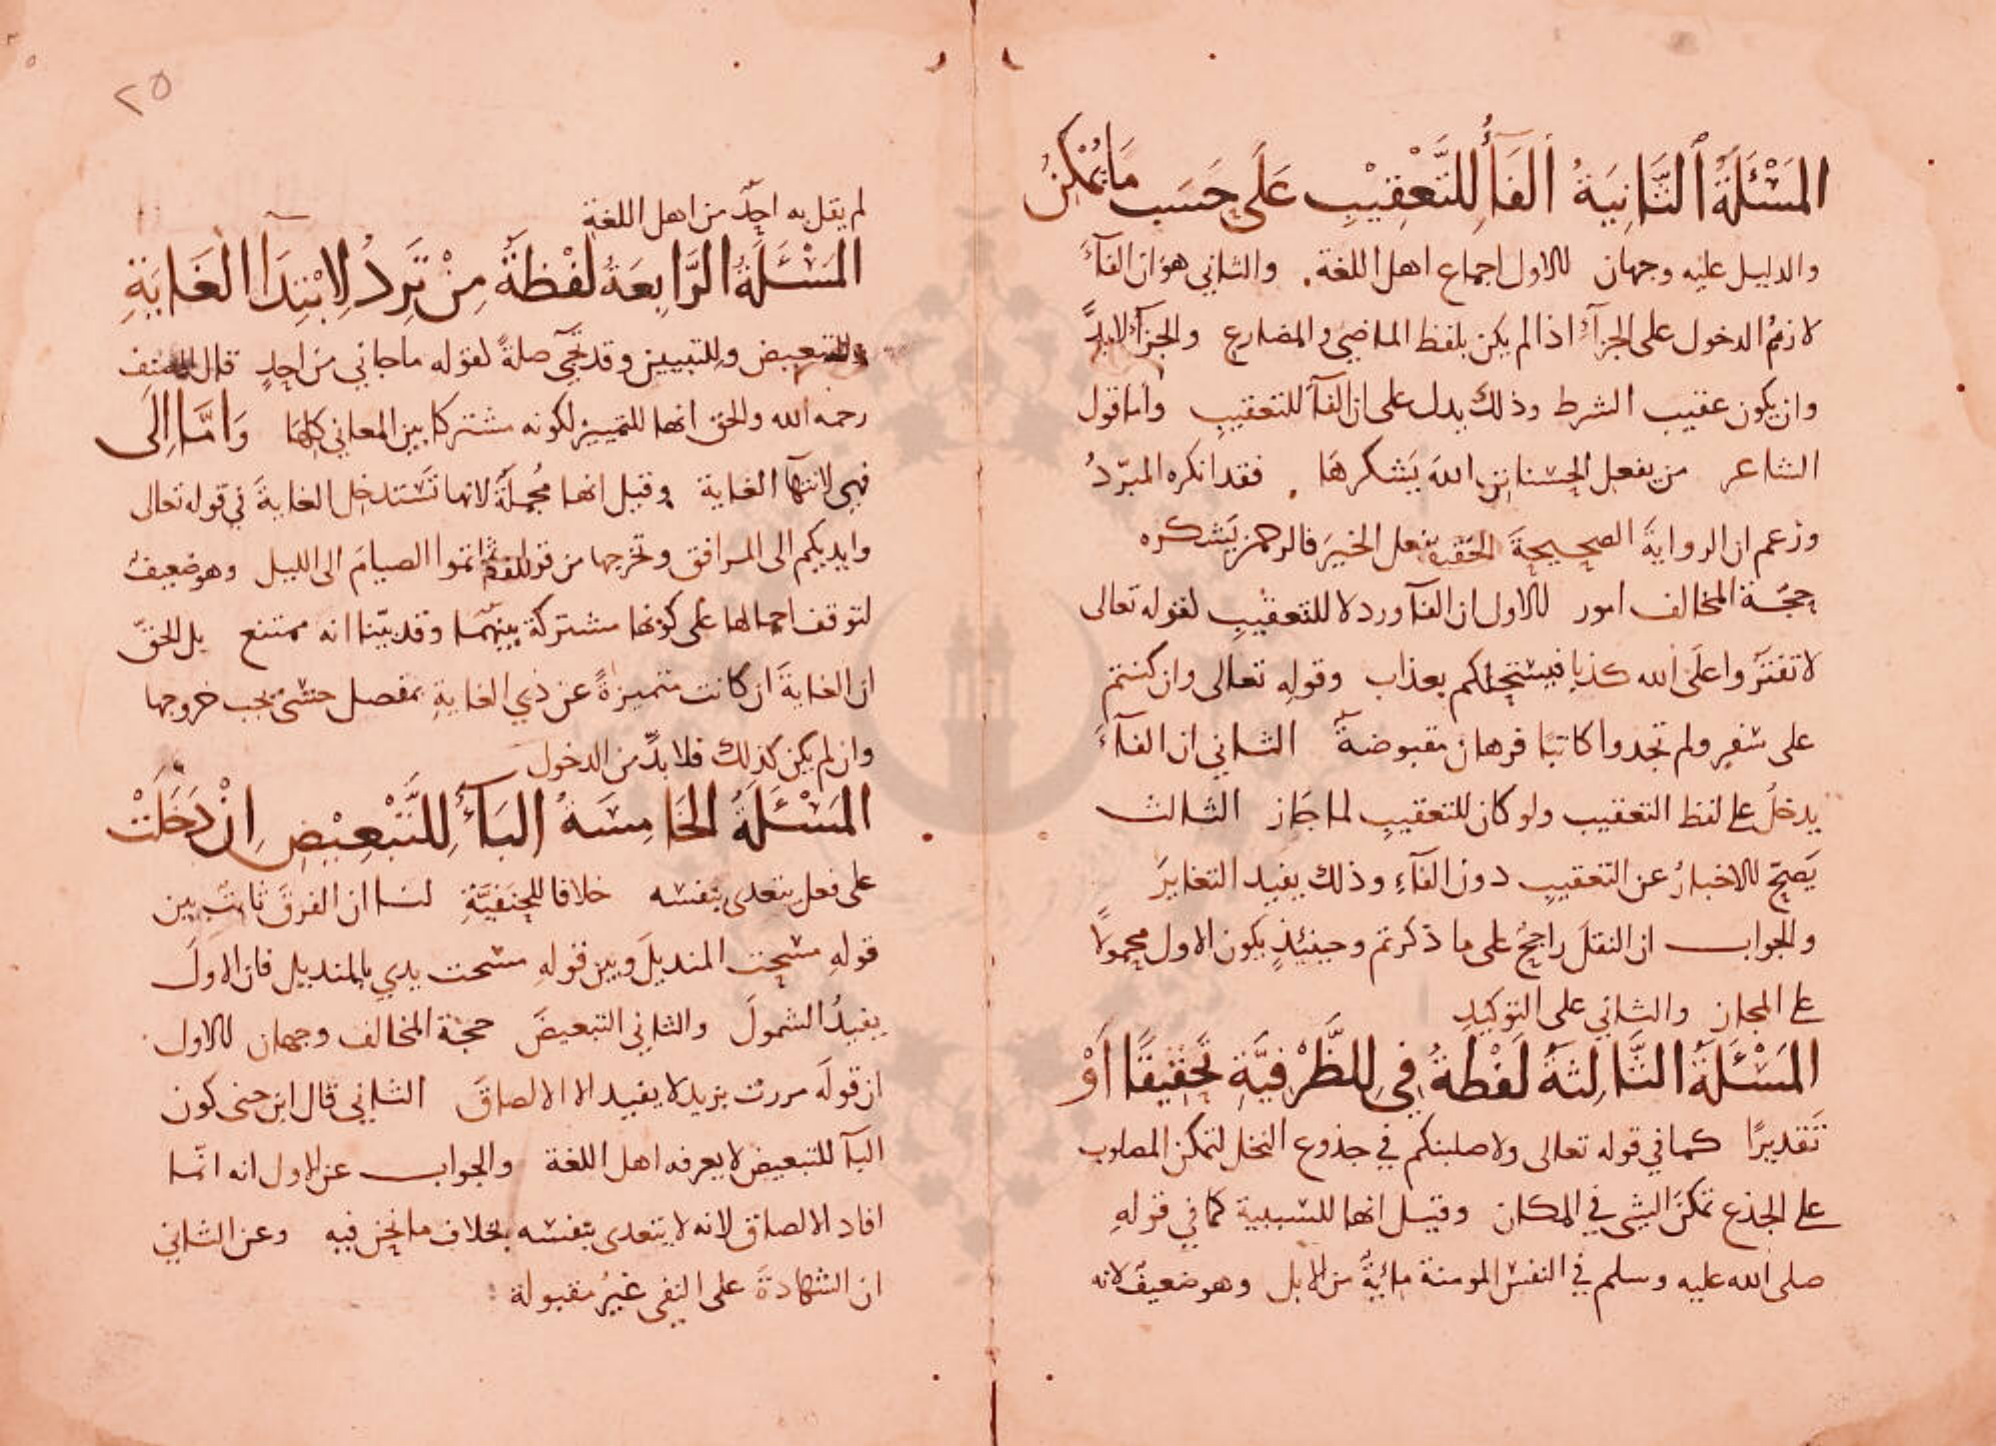 المَسْئَلَةُ الثَّانِيَةُ الفَاءُ لِلتَّعْقِيْبِ عَلَى حَسَبِ مَا يُمْكِنُ
والدليل عليه وجهان الاول اجماع اهل اللغة. والثاني هو ان الفاءَ
لازمُ الدخول على الجزاءِ اذا لم يكن بلفظ الماضي والمضارع والجزآءُ لابدَّ
وان يكون عقيب الشرط وذلك يدل على ان الفآءَ للتعقيبِ واما قول
الشاعر من يفعل الحسنات اللهُ يَشكرهَا . فقد انكره المبرّدُ
وزعم ان الروايةَ الصحيحةَ يفعل الخيرَ فالرحمن يَشكره
حجّة المخالف امور الاول ان الفآء ورد لا للتعقيْبِ لقوله تعالى
لا تفتَرُوا على الله كذبا فيسْحتكم بعذاب وقولِه تعالى وان كنتم
على سَفرٍ ولم تجدوا كاتبًا فرهان مقبوضةٌ الثاني ان الفآءَ
يدخلُ على لفظ التعقيب ولو كان للتعقيبِ لما جَاز الثالث
يَصحّ الاخبارُ عن التّعقيبِ دون الفآءِ وذلك يفيد التغايرَ
والجواب ان النقلَ راجحٌ على ما ذكرتم وحينئذٍ يكون الاول محمولًا
على المجاز والثاني على التوكيدِ
المَسْئَلَةُ الثَّالِثَةُ لَفْظَةُ فِي لِلظَّرْفِيَّةِ تَحْقِيْقًا اَوْ
تَقديرًا كما في قوله تعالى ولاصلبنكم في جذوع النخل لتمكن المصلوب
على الجذع تمكنَ الشي في المكان وقيل انها للسّببية كما في قولِهِ
صلى الله عليه وسلم في النفس المومنة مائيةٌ من الابل وهو ضعيفٌ لانه
٢٥
لم يقل به احدٌ من اهل اللغةِ
المَسْئَلَةُ الرَّابِعَةُ لَفْظَةُ مِنْ تَرِدُ لِابْتِدَاءِ الغَايَةِ
وللتبعيض وللتبيين وقد تجيء صلةً لقوله ما جاني من احدٍ قال المصنف
رحمه الله والحق انها للتمييز لكونه مشتركا بين المعاني كلها وَامَّا اِلَى
فهي لانتهآء الغاية وقيل انها مُجملَةٌ لانها تَسْتدخل الغايةَ في قوله تعالى
وايديكم الى المرافق وتخرجها من قوله ثم اتموا الصيامَ الى الليل وهو ضعيفٌ
لتوقف اجمالها على كونها مشتركة بينهما وقد بيّنا انه ممتنع بل الحقّ
ان الغايةَ ان كانت متميزةً عن ذي الغايةِ بمفصل حسّي يجب خروجها
وان لم يكن كذلك فلا بدَّ من الدخول
المَسْئَلَةُ الخَامِسَةُ البَاءُ لِلتَّبْعِيْضِ اِنْ دَخَلَتْ
على فعل يتعدى بنفسه خلافا للحنَفيَّةِ لنا ان الفرقَ ثابتٌ بين
قولهِ مسَحت المنديلَ وبين قولهِ مسَحت يدي بالمنديل فان الاولَ
يفيدُ الشمولَ والثاني التبعيضَ حجّة المخالف وجهان الاول
ان قولَه مررت بزيد لا يفيد الا الالصاقَ الثاني قال ابن جنى كون
البآء للتبعيض لا يعرفه اهل اللغة والجواب عن الاول انه انّما
افاد الالصاق لانه لا يتعدى بنفسه بخلاف ما نحن فيه وعن الثاني
ان الشهادةَ على النفى غيرُ مقبولة